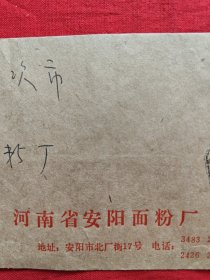 次市
粉厂
河南省安阳面粉厂
地址：安阳市北厂街17号 电话：3483
2426